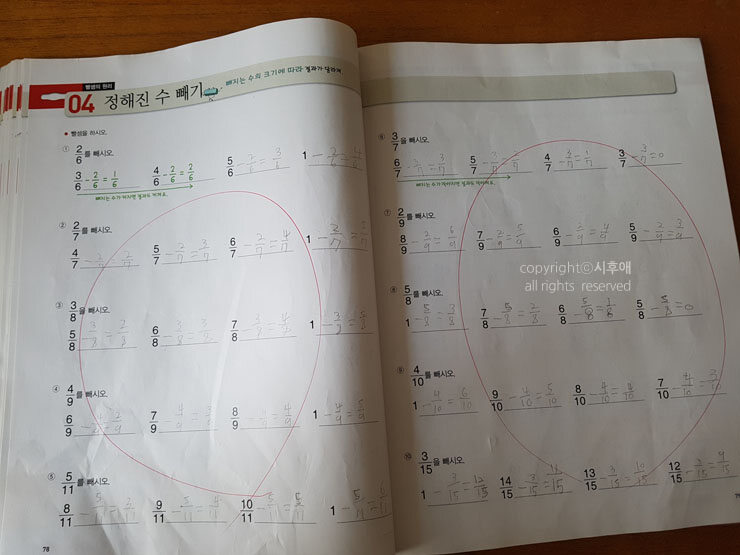 뺄셈의 원리
04 정해진 수 빼기
빼지는 수의 크기에 따라 결과가 달라져
● 뺄셈을 하시오.
① 2/6 를 빼시오.
3/6 - 2/6 = 1/6 4/6 - 2/6 = 2/6 5/6 - 2/6 = 3/6 1 - 2/6 = 4/6
빼지는 수가 커지면 결과도 커져요.
② 2/7 를 빼시오.
4/7 - 2/7 = 2/7 5/7 - 2/7 = 3/7 6/7 - 2/7 = 4/7 1 - 2/7 =
③ 3/8 를 빼시오.
5/8 - 3/8 = 2/8 6/8 - 3/8 = 3/8 7/8 - 3/8 = 4/8 1 - 3/8 = 5/8
④ 4/9 를 빼시오.
6/9 - 4/9 = 2/9 7/9 - 4/9 = 3/9 8/9 - 4/9 = 4/9 1 - 4/9 = 5/9
⑤ 5/11 를 빼시오.
8/11 - 5/11 = 3/11 9/11 - 5/11 = 4/11 10/11 - 5/11 = 5/11 1 - 5/11 = 6/11
78
⑥ 3/7 을 빼시오.
6/7 - 3/7 = 3/7 5/7 - 3/7 = 4/7 - 3/7 = 1/7 3/7 - 3/7 = 0
빼지는 수가 작아지면 결과도 작아져요.
⑦ 2/9 를 빼시오.
8/9 - 2/9 = 6/9 7/9 - 2/9 = 5/9 6/9 - 2/9 = 4/9 5/9 - 2/9 = 3/9
copyrightⓒ시후애
all rights reserved
⑧ 5/8 를 빼시오.
1 - 5/8 = 3/8 7/8 - 5/8 = 2/8 6/8 - 5/8 = 1/8 5/8 - 5/8 = 0
⑨ 4/10 를 빼시오.
1 - 4/10 = 6/10 9/10 - 4/10 = 5/10 8/10 - 4/10 = 4/10 7/10 - 4/10 = 3/10
⑩ 3/15 을 빼시오.
1 - 3/15 = 12/15 14/15 - 3/15 = 11/15 13/15 - 3/15 = 10/15 12/15 - 3/15 = 9/15